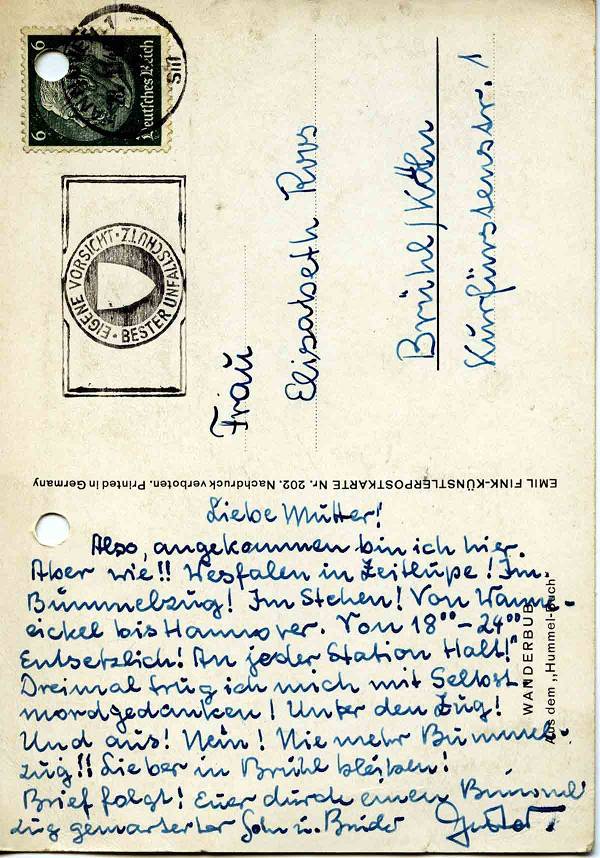 6
6
Deutsches Reich
EIGENE VORSICHT · BESTER UNFALLSCHUTZ ·
Frau
Elisabeth Roos
Brühl/Köln
Kurfürstenstr. 1
EMIL FINK-KÜNSTLERPOSTKARTE Nr. 202. Nachdruck verboten. Printed in Germany
WANDERBUB
Aus dem „Hummel-Buch"
Liebe Mutter!
Also, angekommen bin ich hier.
Aber wie!! Wesfalen in Zeitlupe! Im
Bummelzug! Im Stehen! Von Wanne-
eickel bis Hannover. Von 18⁰⁰-24⁰⁰
Entsetzlich! An jeder Station Halt!
Dreimal trug ich mich mit Selbst-
mordgedanken! Unter den Zug!
Und aus! Nein! Nie mehr Bummel-
zug!! Lieber in Brühl bleiben!
Brief folgt! Euer durch einen Bummel
zug gemarterter Sohn u. Bruder